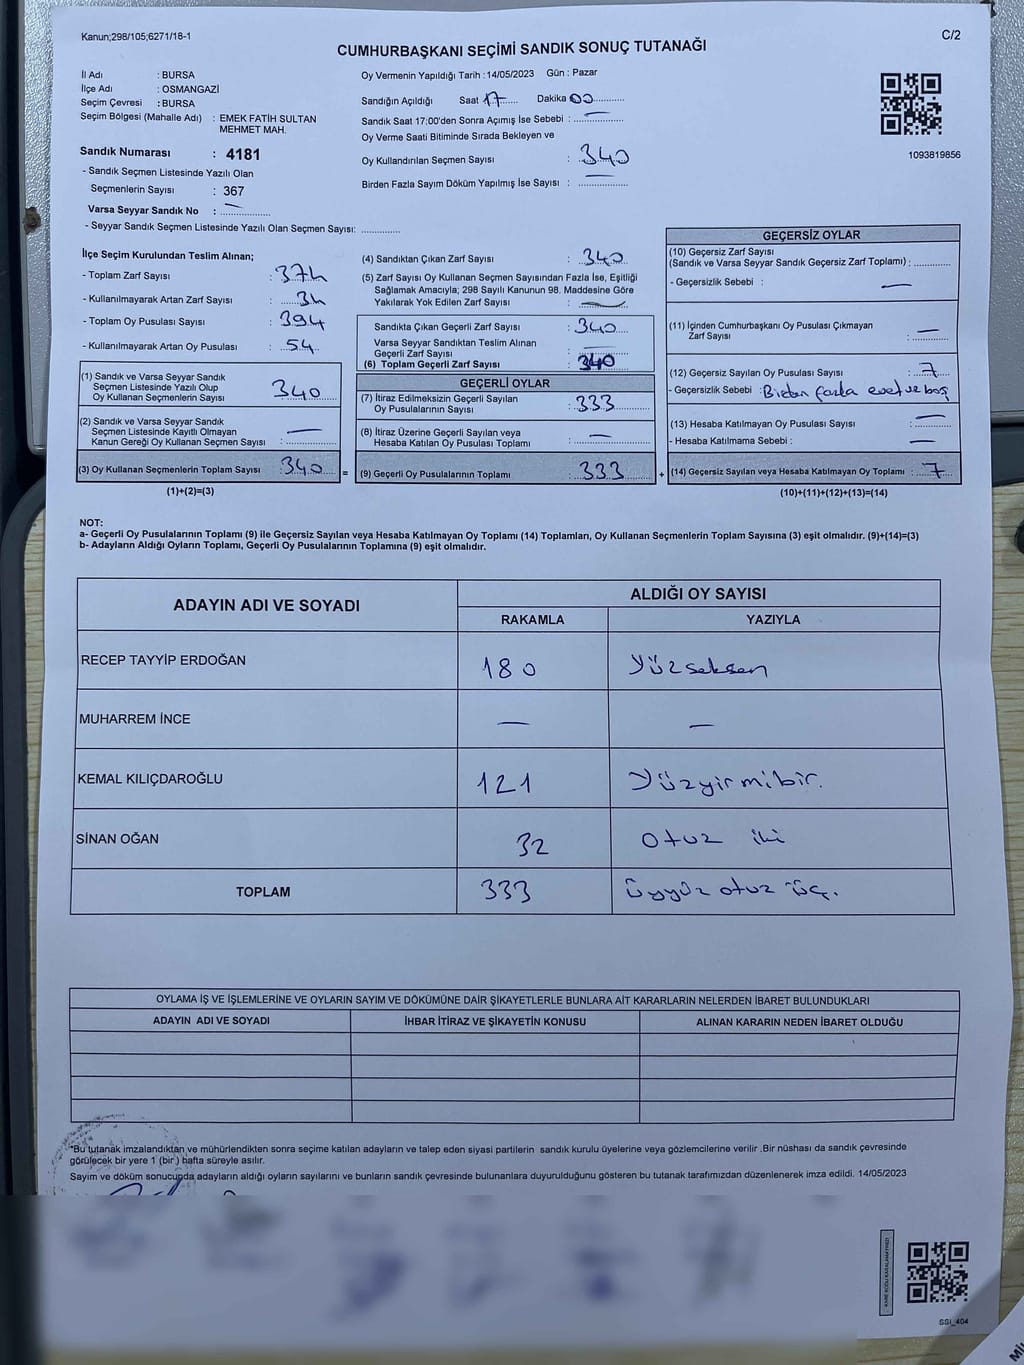 Kanun;298/105;6271/18-1
C/2
CUMHURBAŞKANI SEÇİMİ SANDIK SONUÇ TUTANAĞI
İl Adı : BURSA
İlçe Adı : OSMANGAZİ
Seçim Çevresi : BURSA
Seçim Bölgesi (Mahalle Adı) : EMEK FATİH SULTAN
MEHMET MAH.
Sandık Numarası : 4181
- Sandık Seçmen Listesinde Yazılı Olan
Seçmenlerin Sayısı : 367
Varsa Seyyar Sandık No : —
- Seyyar Sandık Seçmen Listesinde Yazılı Olan Seçmen Sayısı: ..............
Oy Vermenin Yapıldığı Tarih : 14/05/2023 Gün : Pazar
Sandığın Açıldığı Saat 17 Dakika 00
Sandık Saat 17:00'den Sonra Açımış İse Sebebi : —
Oy Verme Saati Bitiminde Sırada Bekleyen ve
Oy Kullandırılan Seçmen Sayısı : 340
Birden Fazla Sayım Döküm Yapılmış İse Sayısı : —
1093819856
İlçe Seçim Kurulundan Teslim Alınan;
- Toplam Zarf Sayısı : 374
- Kullanılmayarak Artan Zarf Sayısı : 34
- Toplam Oy Pusulası Sayısı : 394
- Kullanılmayarak Artan Oy Pusulası : 54
(1) Sandık ve Varsa Seyyar Sandık
Seçmen Listesinde Yazılı Olup
Oy Kullanan Seçmenlerin Sayısı : 340
(2) Sandık ve Varsa Seyyar Sandık
Seçmen Listesinde Kayıtlı Olmayan
Kanun Gereği Oy Kullanan Seçmen Sayısı : —
(3) Oy Kullanan Seçmenlerin Toplam Sayısı : 340 =
(1)+(2)=(3)
(4) Sandıktan Çıkan Zarf Sayısı : 340
(5) Zarf Sayısı Oy Kullanan Seçmen Sayısından Fazla İse, Eşitliği
Sağlamak Amacıyla; 298 Sayılı Kanunun 98. Maddesine Göre
Yakılarak Yok Edilen Zarf Sayısı : —
Sandıkta Çıkan Geçerli Zarf Sayısı : 340
Varsa Seyyar Sandıktan Teslim Alınan
Geçerli Zarf Sayısı : —
(6) Toplam Geçerli Zarf Sayısı : 340
GEÇERLİ OYLAR
(7) İtiraz Edilmeksizin Geçerli Sayılan
Oy Pusulalarının Sayısı : 333
(8) İtiraz Üzerine Geçerli Sayılan veya
Hesaba Katılan Oy Pusulası Toplamı : —
(9) Geçerli Oy Pusulalarının Toplamı : 333 +
GEÇERSİZ OYLAR
(10) Geçersiz Zarf Sayısı
(Sandık ve Varsa Seyyar Sandık Geçersiz Zarf Toplamı) : ..............
- Geçersizlik Sebebi : —
(11) İçinden Cumhurbaşkanı Oy Pusulası Çıkmayan
Zarf Sayısı : —
(12) Geçersiz Sayılan Oy Pusulası Sayısı : 7
- Geçersizlik Sebebi : Birden fazla evet ve boş
(13) Hesaba Katılmayan Oy Pusulası Sayısı : —
- Hesaba Katılmama Sebebi : —
(14) Geçersiz Sayılan veya Hesaba Katılmayan Oy Toplamı : 7
(10)+(11)+(12)+(13)=(14)
NOT:
a- Geçerli Oy Pusulalarının Toplamı (9) ile Geçersiz Sayılan veya Hesaba Katılmayan Oy Toplamı (14) Toplamları, Oy Kullanan Seçmenlerin Toplam Sayısına (3) eşit olmalıdır. (9)+(14)=(3)
b- Adayların Aldığı Oyların Toplamı, Geçerli Oy Pusulalarının Toplamına (9) eşit olmalıdır.
ADAYIN ADI VE SOYADI
ALDIĞI OY SAYISI
RAKAMLA YAZIYLA
RECEP TAYYİP ERDOĞAN 180 Yüzseksen
MUHARREM İNCE — —
KEMAL KILIÇDAROĞLU 121 Yüzyirmibir.
SİNAN OĞAN 32 Otuz iki
TOPLAM 333 üçyüz otuz üç.
OYLAMA İŞ VE İŞLEMLERİNE VE OYLARIN SAYIM VE DÖKÜMÜNE DAİR ŞİKAYETLERLE BUNLARA AİT KARARLARIN NELERDEN İBARET BULUNDUKLARI
ADAYIN ADI VE SOYADI İHBAR İTİRAZ VE ŞİKAYETİN KONUSU ALINAN KARARIN NEDEN İBARET OLDUĞU
"Bu tutanak imzalandıktan ve mühürlendikten sonra seçime katılan adayların ve talep eden siyasi partilerin sandık kurulu üyelerine veya gözlemcilerine verilir .Bir nüshası da sandık çevresinde
görülecek bir yere 1 (bir ) hafta süreyle asılır.
Sayım ve döküm sonucunda adayların aldığı oyların sayılarını ve bunların sandık çevresinde bulunanlara duyurulduğunu gösteren bu tutanak tarafımızdan düzenlenerek imza edildi. 14/05/2023
SSI_404